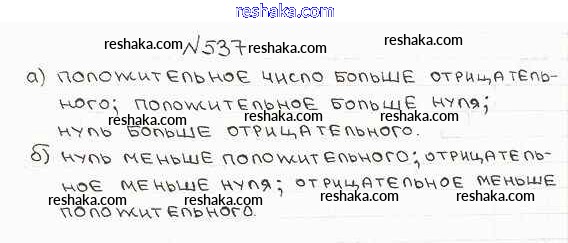 reshaka.com
№537
а) положительное число больше отрицатель-
ного; положительное больше нуля;
нуль больше отрицательного.
б) нуль меньше положительного; отрицатель-
ное меньше нуля; отрицательное меньше
положительного.
reshaka.com reshaka.com reshaka.com
reshaka.com reshaka.com reshaka.com
reshaka.com reshaka.com reshaka.com
reshaka.com reshaka.com reshaka.com